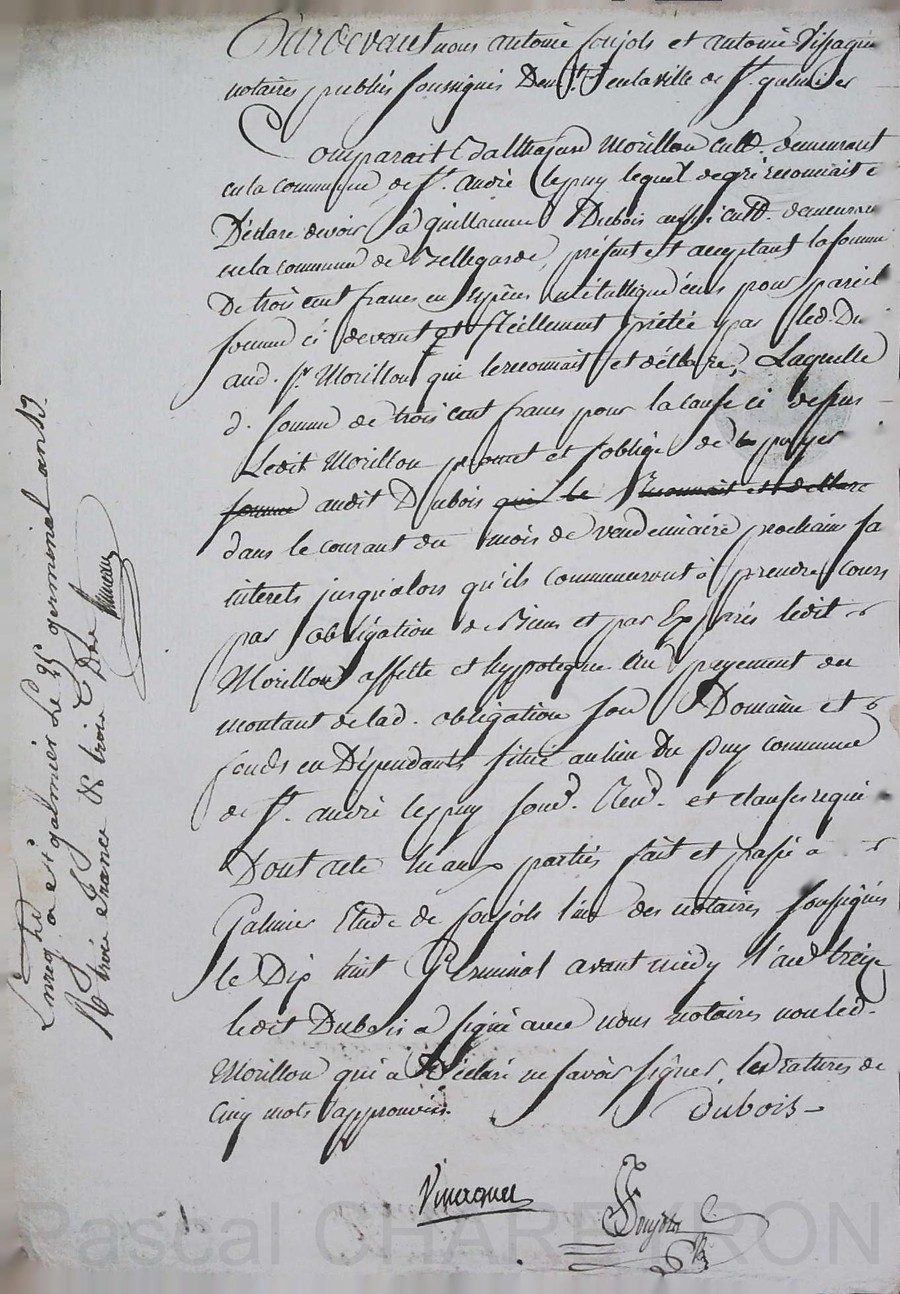 Pardevant nous antoine Soujols et antoine
notaires publics soussignés en la ville de St. galmier
Comparait Balthazard Morillon cultr. demeurant
en la commune de St. andré le puy lequel de gré reconnait e
Déclare devoir à guillaume Dubois aussi cultr. demeuran
en la commune de Bellegarde, présent et acceptant la somme
De trois cent francs en Espèces métallique pour pareil
somme ci devant et réellement prêtée par led. Du
aud. Sr. Morillon qui le reconnait et déclare, Laquelle
d. somme de trois cent francs pour la cause ci dessus
Ledit Morillon promet et s'oblige de payer
somme audit Dubois qui le Reconnait et déclare
dans le courant du mois de vendemiaire prochain sa
interets jusqu'alors qu'ils commenceront à prendre cours
par obligation de Biens et par Exprès ledit
Morillon affette et hypoteque au payement du
montant de lad. obligation son Domaine et
fonds en Dépendants situé au lieu Du puy commune
de St. andré le puy soud. Rend. et clauses requi
Dont acte lu aux parties fait et passé a
Galmier Etude de soujols l'un des notaires soussignés
le Dix huit Germinal avant midy l'an treize
ledit Dubois a signé avec nous notaires non led.
Morillon qui a Déclaré ne savoir signer, les ratures de
Cinq mots approuvées.
Dubois
Soujols
Enregtré a st galmier Le 25 germinal an 13.
R trois francs & trois Dxes
Pascal CHAREYRON